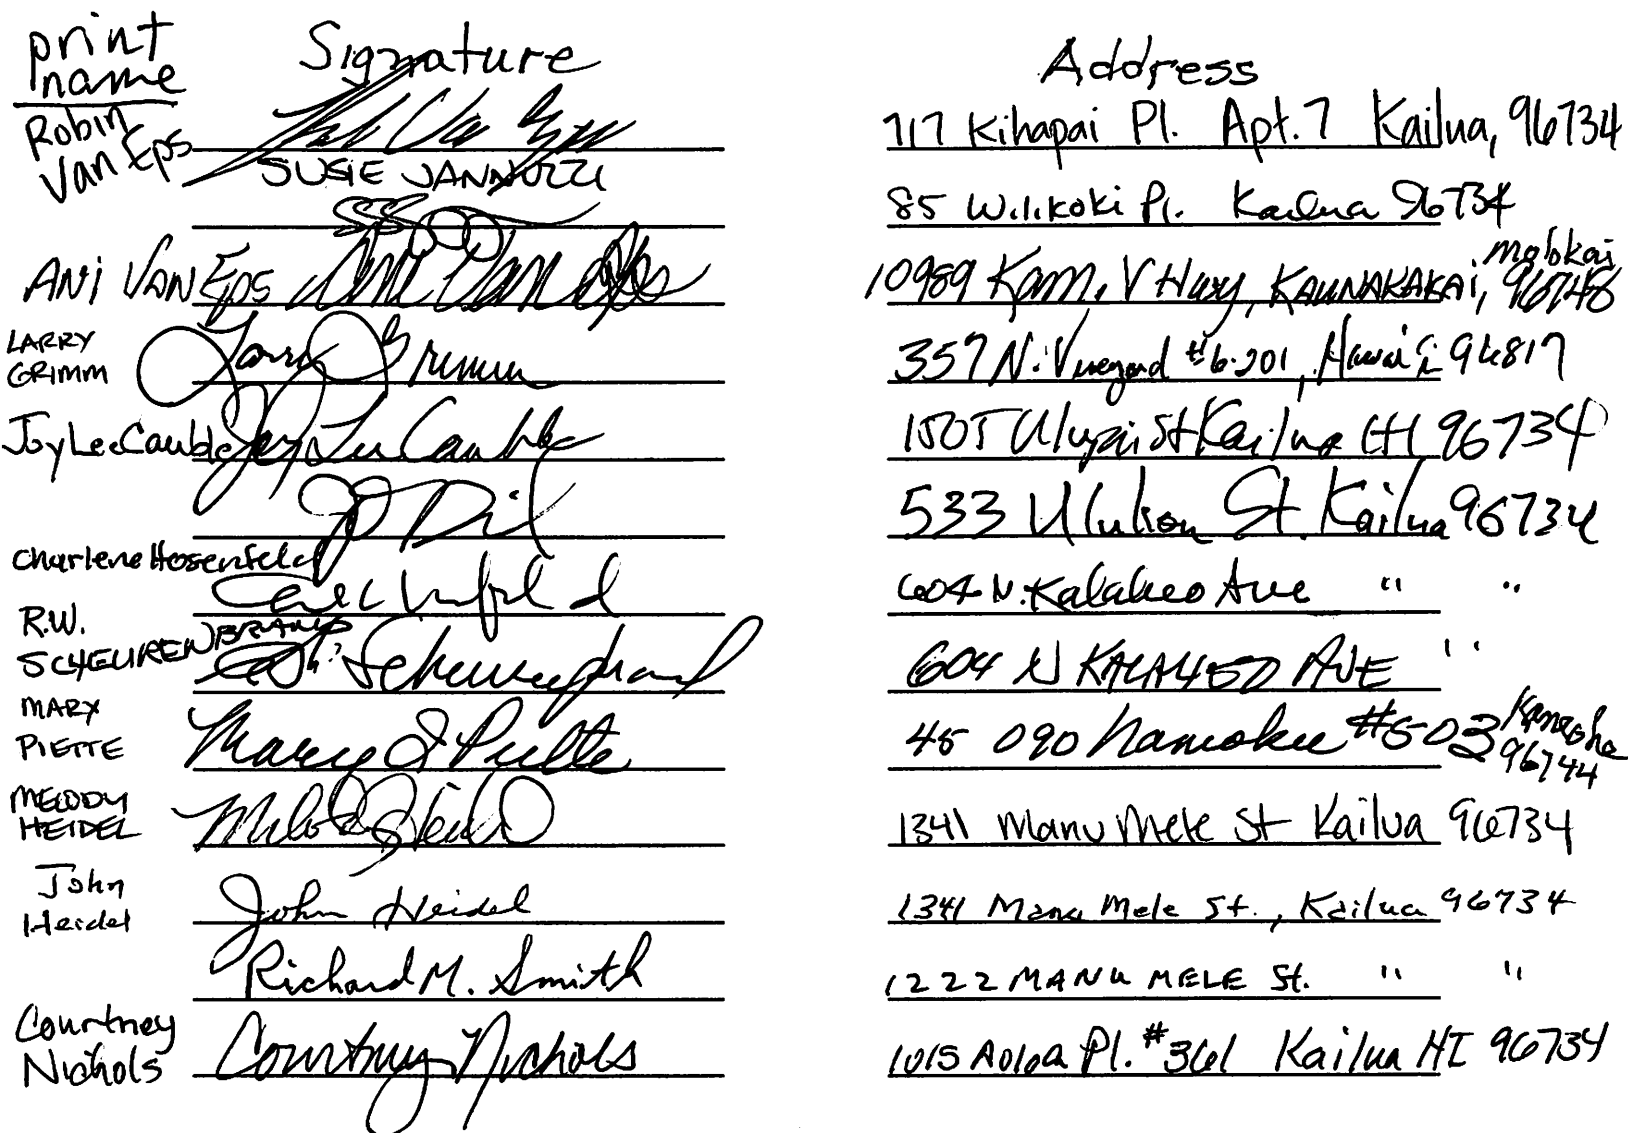 print name Signature Address
Robin Van Eps 717 Kihapai Pl. Apt. 7 Kailua, 96734
SUSIE JANNUZZI
85 Wilikoki Pl. Kailua 96734
ANi VAN Eps Ani Van Eps 10989 Kam. V Hwy, KAUNAKAKAI, Molokai 96748
LARRY GRIMM Larry Grimm 357 N. Vineyard #6-201, Hawai'i 96817
Joy Lee Cauble Joy Lee Cauble 1505 Ulupii St Kailua HI 96734
533 St. Kailua 96734
Charlene Hosenfeld 604 N. Kalaheo Ave " "
R.W. SCHEURENBRAND 604 N KALAHEO AVE "
MARY PIETTE Mary Piette 45 090 Namoku #503 Kaneohe 96744
MELODY HEIDEL Melody Heidel 1341 Manu Mele St Kailua 96734
John Heidel John Heidel 1341 Manu Mele St., Kailua 96734
Richard M. Smith 1222 MANU MELE St. " "
Courtney Nichols Courtney Nichols 1015 Aoloa Pl. #361 Kailua HI 96734